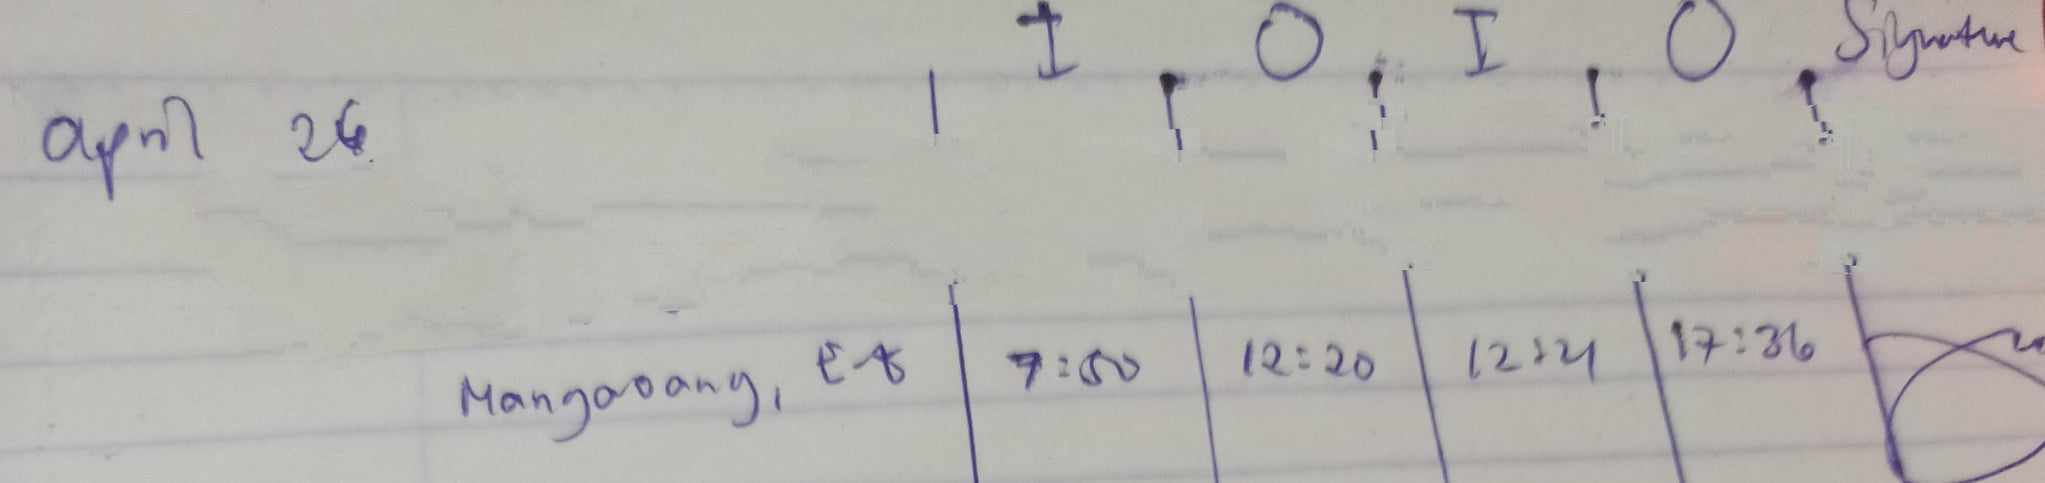 I O I O Signature
April 26
Mangaoang, 7:50 12:20 12:21 17:36